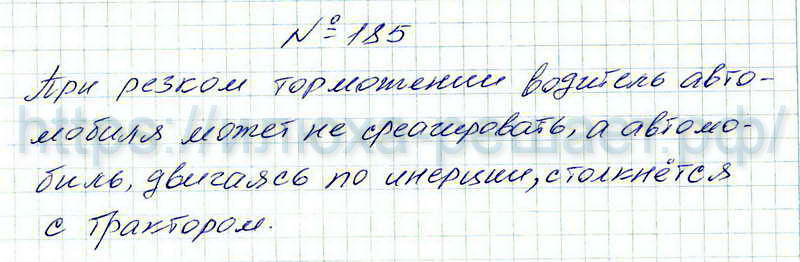 №185
При резком торможении водитель авто-
мобиля может не среагировать, а автомо-
биль, двигаясь по инерции, столкнётся
с трактором.